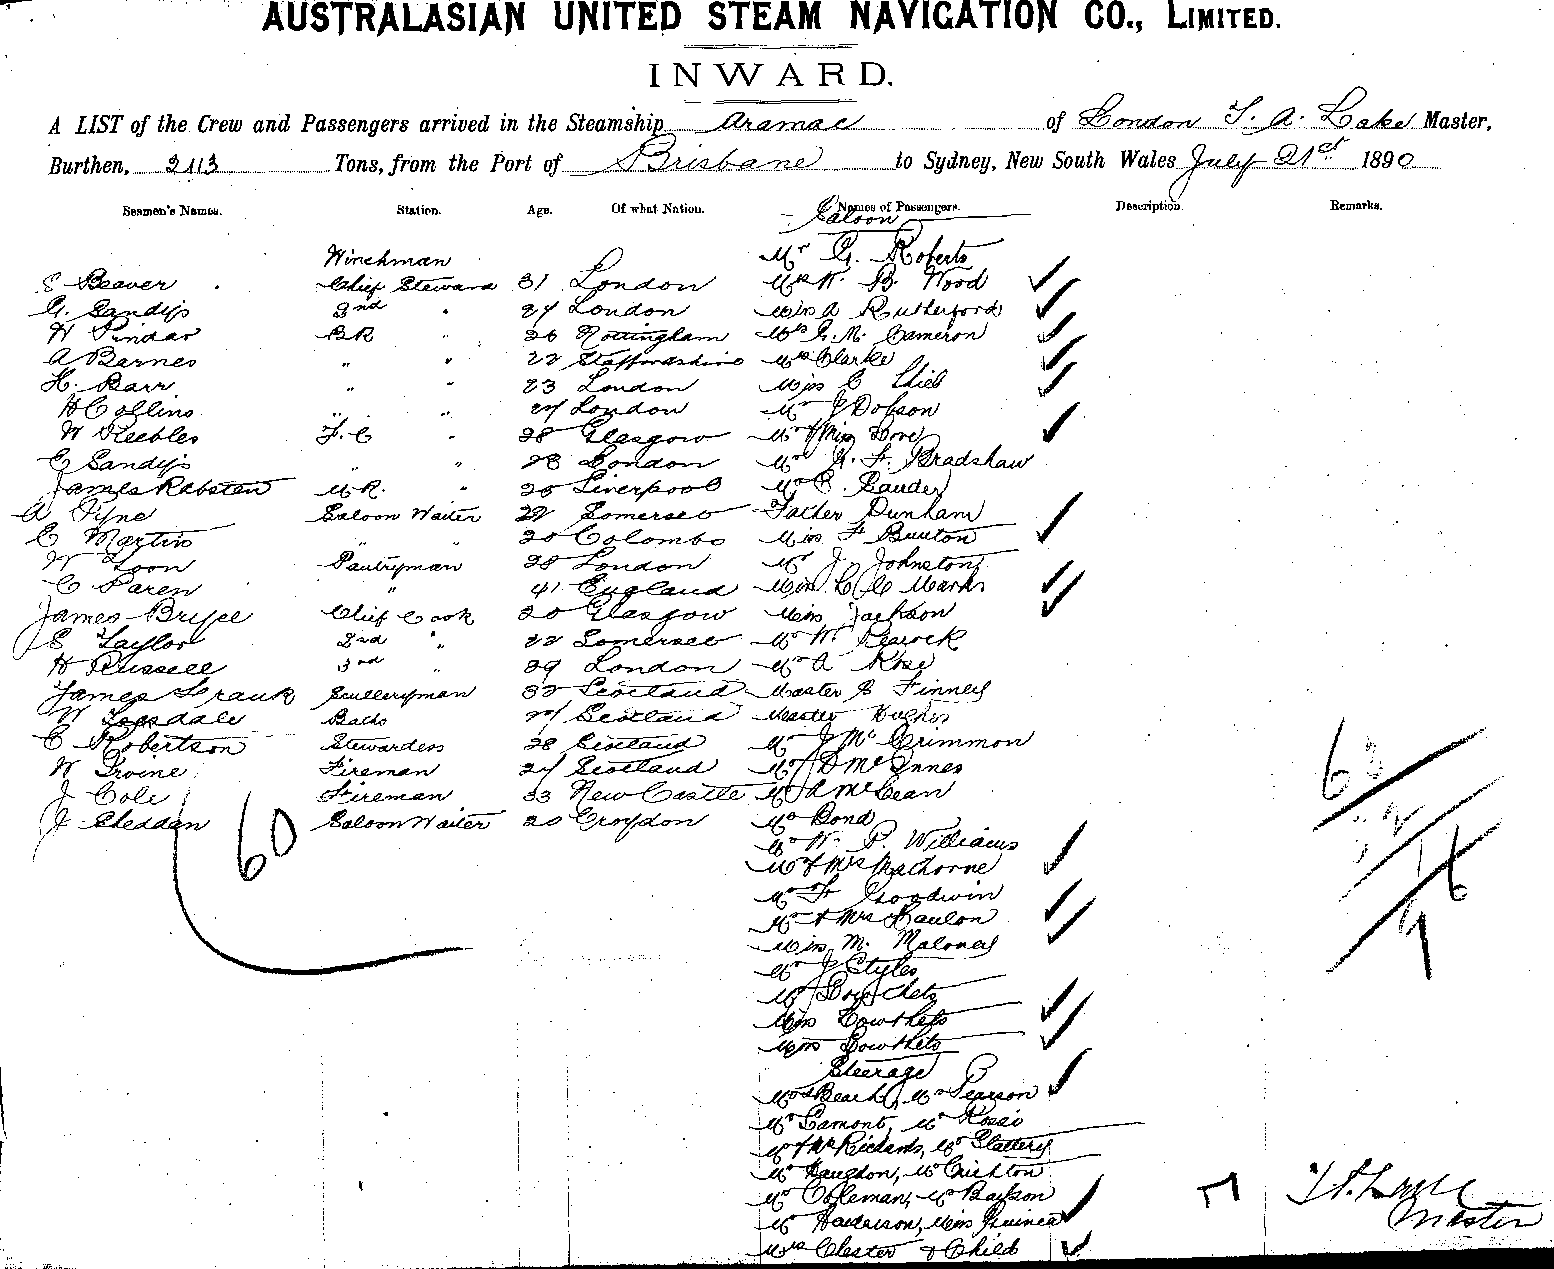 AUSTRALASIAN UNITED STEAM NAVIGATION CO., LIMITED.
INWARD.
A LIST of the Crew and Passengers arrived in the Steamship Aramac of London T. A. Lake Master,
Burthen, 2113 Tons, from the Port of Brisbane to Sydney, New South Wales July 21st 1890
Seamen's Names. Station. Age. Of what Nation. Names of Passengers. Description. Remarks.
Saloon
Winchman Mr G. Roberts
E Beaver Chief Steward 31 London Mr W. B. Wood
G. Sandys 2nd " 27 London Miss A Rutherford
H Pindar BR " 26 Nottingham Mrs G. M. Cameron
A Barnes " " 22 Staffordshire Mrs Clarke
H. Barr " " 23 London Miss C
H Collins " " 27 London Mr J Dobson
W Peebles F. C " 28 Glasgow Mr & Miss Dove
E Sandys " " 23 London Mr A. F. Bradshaw
James Rabsten M.R. " 25 Liverpool Mr C.
A Pyne Saloon Waiter 22 Somerset Father Dunham
E Martin " " 20 Colombo Miss F Buxton
W Loon Pantryman 28 London Mr J. Johnston
C Paren " 41 England Miss C Marks
James Bryce Chief Cook 20 Glasgow Miss Jackson
E Taylor 2nd " 22 Somerset Mr W. Peacock
H Russell 3rd " 29 London Mr A Rose
James Frank Sculleryman 32 Scotland Master G Finney
W Teesdale Baths 27 Scotland Master Hughes
C Robertson Stewardess 28 Scotland Mr J McCrimmon
W Irvine Fireman 24 Scotland Mr D McInnes
J Cole Fireman 33 New Castle Mr A McLean
J Sheddan Saloon Waiter 20 Croydon Mr Bond
60
Mr W. P. Williams
Mr & Mrs Mathorne
Mr F Goodwin
Mr & Mrs
Miss M. Maloney
Mr J Styles
Mr
Miss
Miss
Steerage
Mrs Beach, Mr Pearson
Mr Lamont, Mr Rossi
Mr & Mrs Rickards, Mr Slattery
Mr Haughdon, Mr Crichton
Mr Coleman, Mr
Mr Henderson, Miss Guinea
Mrs Chester & Child
Master